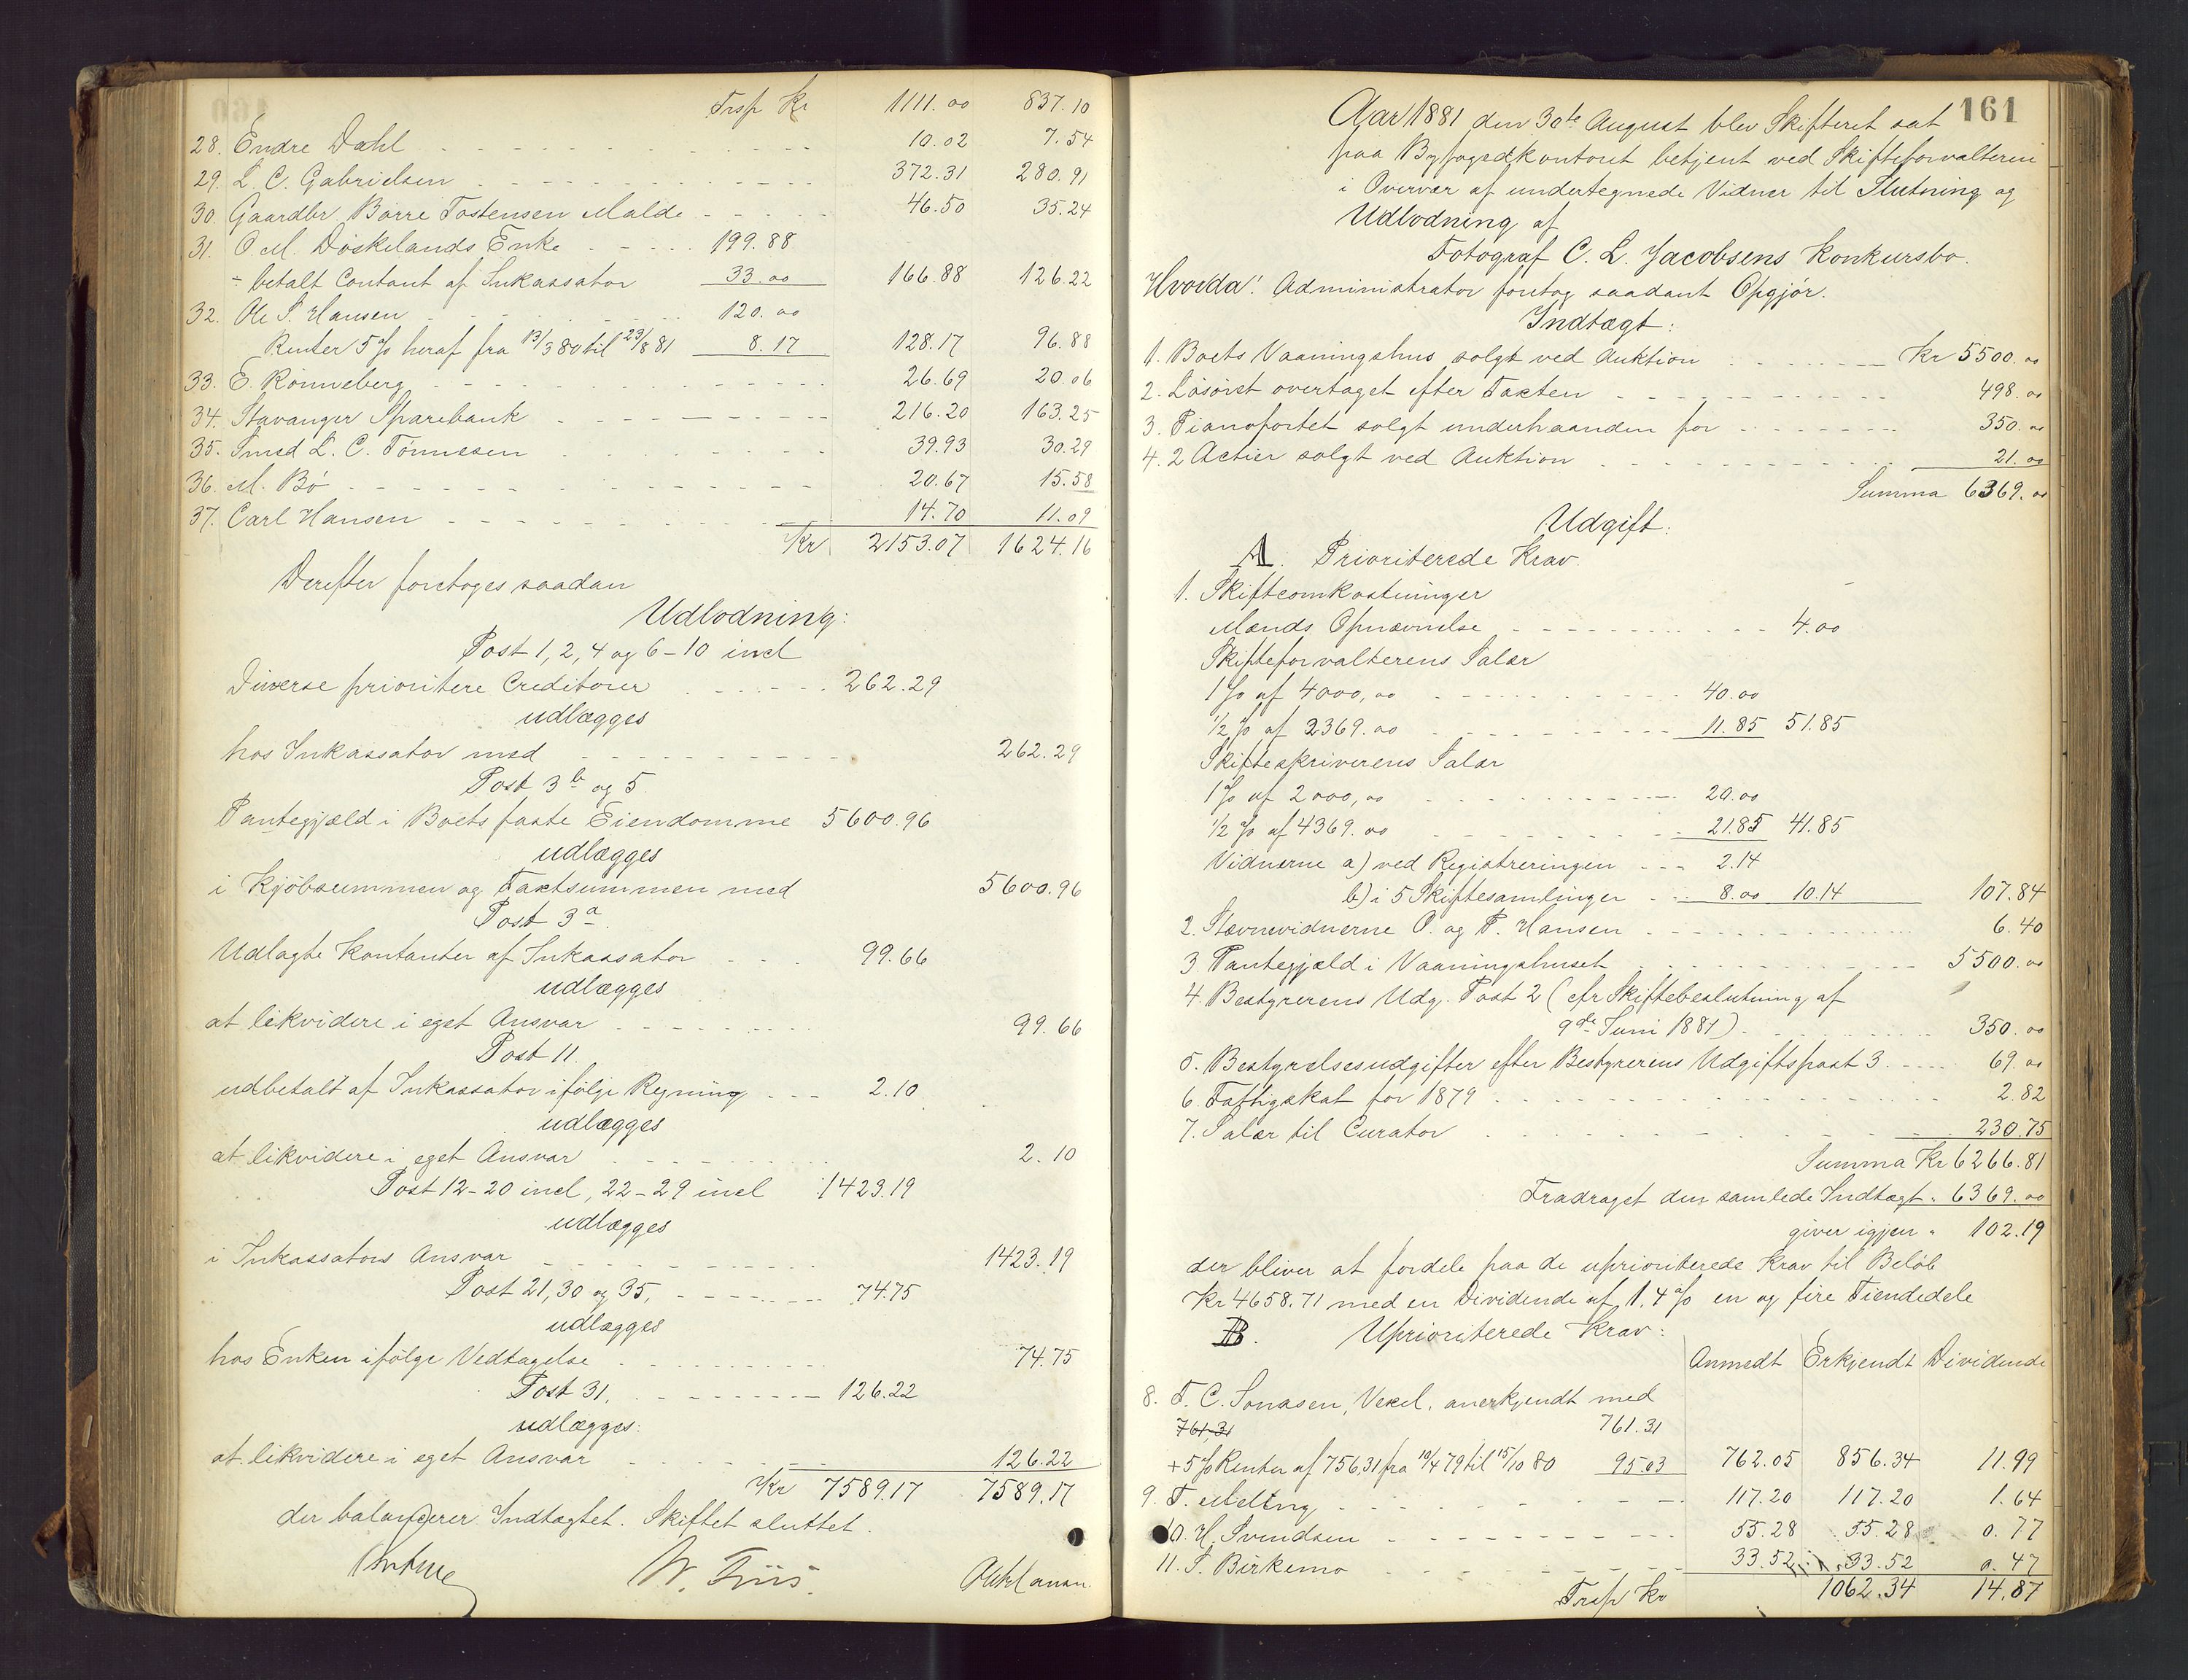 Trsp Kr 1111.00 837.10
28. Endre Dahl 10.02 7.54
29. L. C. Gabrielsen 372.31 280.91
30. Gaardbr Børre Tostensen Malde 46.50 35.24
31. O. M. Døskelands Enke 199.88
÷ betalt Contant af Inkassator 33.00 166.88 126.22
32. Ole S. Hansen 120.00
Renter 5% heraf fra 13/3 80 til 23/8 81 8.17 128.17 96.88
33. E. Rønneberg 26.69 20.06
34. Stavanger Sparebank 216.20 163.25
35. Smed L. C. Tønnesen 39.93 30.29
36. M. Bø 20.67 15.58
37. Carl Hansen 14.70 11.09
Kr 2153.07 1624.16
Derefter foretoges saadan
Udlodning:
Post 1, 2, 4 og 6-10 incl
Diverse prioritere Creditorer 262.29
udlægges
hos Inkassator med 262.29
Post 3b og 5.
Pantegjæld i Boets faste Eiendomme 5600.96
udlægges
i Kjøbsummen og Taxtsummen med 5600.96
Post 3a.
Udlagte Kontanter af Inkassator 99.66
udlægges
at likvidere i eget Ansvar 99.66
Post 11.
udbetalt af Inkassator ifølge Regning 2.10
udlægges
at likvidere i eget Ansvar 2.10
Post 12-20 incl, 22-29 incl 1423.19
udlægges
i Inkassators Ansvar 1423.19
Post 21, 30 og 35, 74.75
udlægges
hos Enken ifølge Vedtagelse 74.75
Post 31, 126.22
udlægges:
at likvidere i eget Ansvar 126.22
Kr 7589.17 7589.17
der balancerer Indtægtet. Skiftet sluttet.
161
Aar 1881 den 30te August blev Skifteret sat
paa Byfogedkontoret betjent ved Skifteforvalteren
i Overvær af undertegnede Vidner til Slutning og
Udlodning af
Fotograf C. L. Jacobsens Konkursbo.
Hvorda: Administrator foretog saadant Opgjør.
Indtægt:
1. Boets Vaaningshus solgt ved Auktion Kr 5500.00
2. Løsøret overtaget efter Taxten 498.00
3. Pianofortet solgt underhaanden for 350.00
4. 2 Actier solgt ved Auktion 21.00
Summa 6369.00
Udgift:
A. Prioriterede Krav.
1. Skifteomkostninger
Mænds Opnævnelse 4.00
Skifteforvalterens Salær
1% af 4000,00 40.00
1/2% af 2369.00 11.85 51.85
Skifteskriverens Salær
1% af 2000,00 20.00
1/2% af 4369.00 21.85 41.85
Vidnerne a) ved Registreringen 2.14
b) i 5 Skiftesamlinger 8.00 10.14 107.84
2. Stævnevidnerne O. og P. Hansen 6.40
3. Pantegjæld i Vaaningshuset 5500.00
4. Bestyrerens Udg. Post 2 (cfr Skiftebeslutning af
9de Juni 1881) 350.00
5. Bestyrelsesudgifter efter Bestyrerens Udgiftspost 3 69.00
6. Fattigskat for 1879 2.82
7. Salær til Curator 230.75
Summa Kr 6266.81
Fradraget den samlede Indtægt " 6369.00
giver igjen " 102.19
der bliver at fordele paa de uprioriterede Krav til Beløb
Kr 4658.71 med en Dividende af 1.4% en og fire Tiendedele
B. Uprioriterede Krav:
Anmeldt Erkjendt Dividende
8. T. C. Jonasen, Vexel, anerkjendt med
761.31 761.31
+5% Renter af 756,31 fra 19/4 79 til 15/10 80 95.03 762.05 856.34 11.99
9. T. Meling 117.20 117.20 1.64
10. H. Svendsen 55.28 55.28 0.77
11. S. Birkemo 33.52 33.52 0.47
Trsp Kr 1062.34 14.87